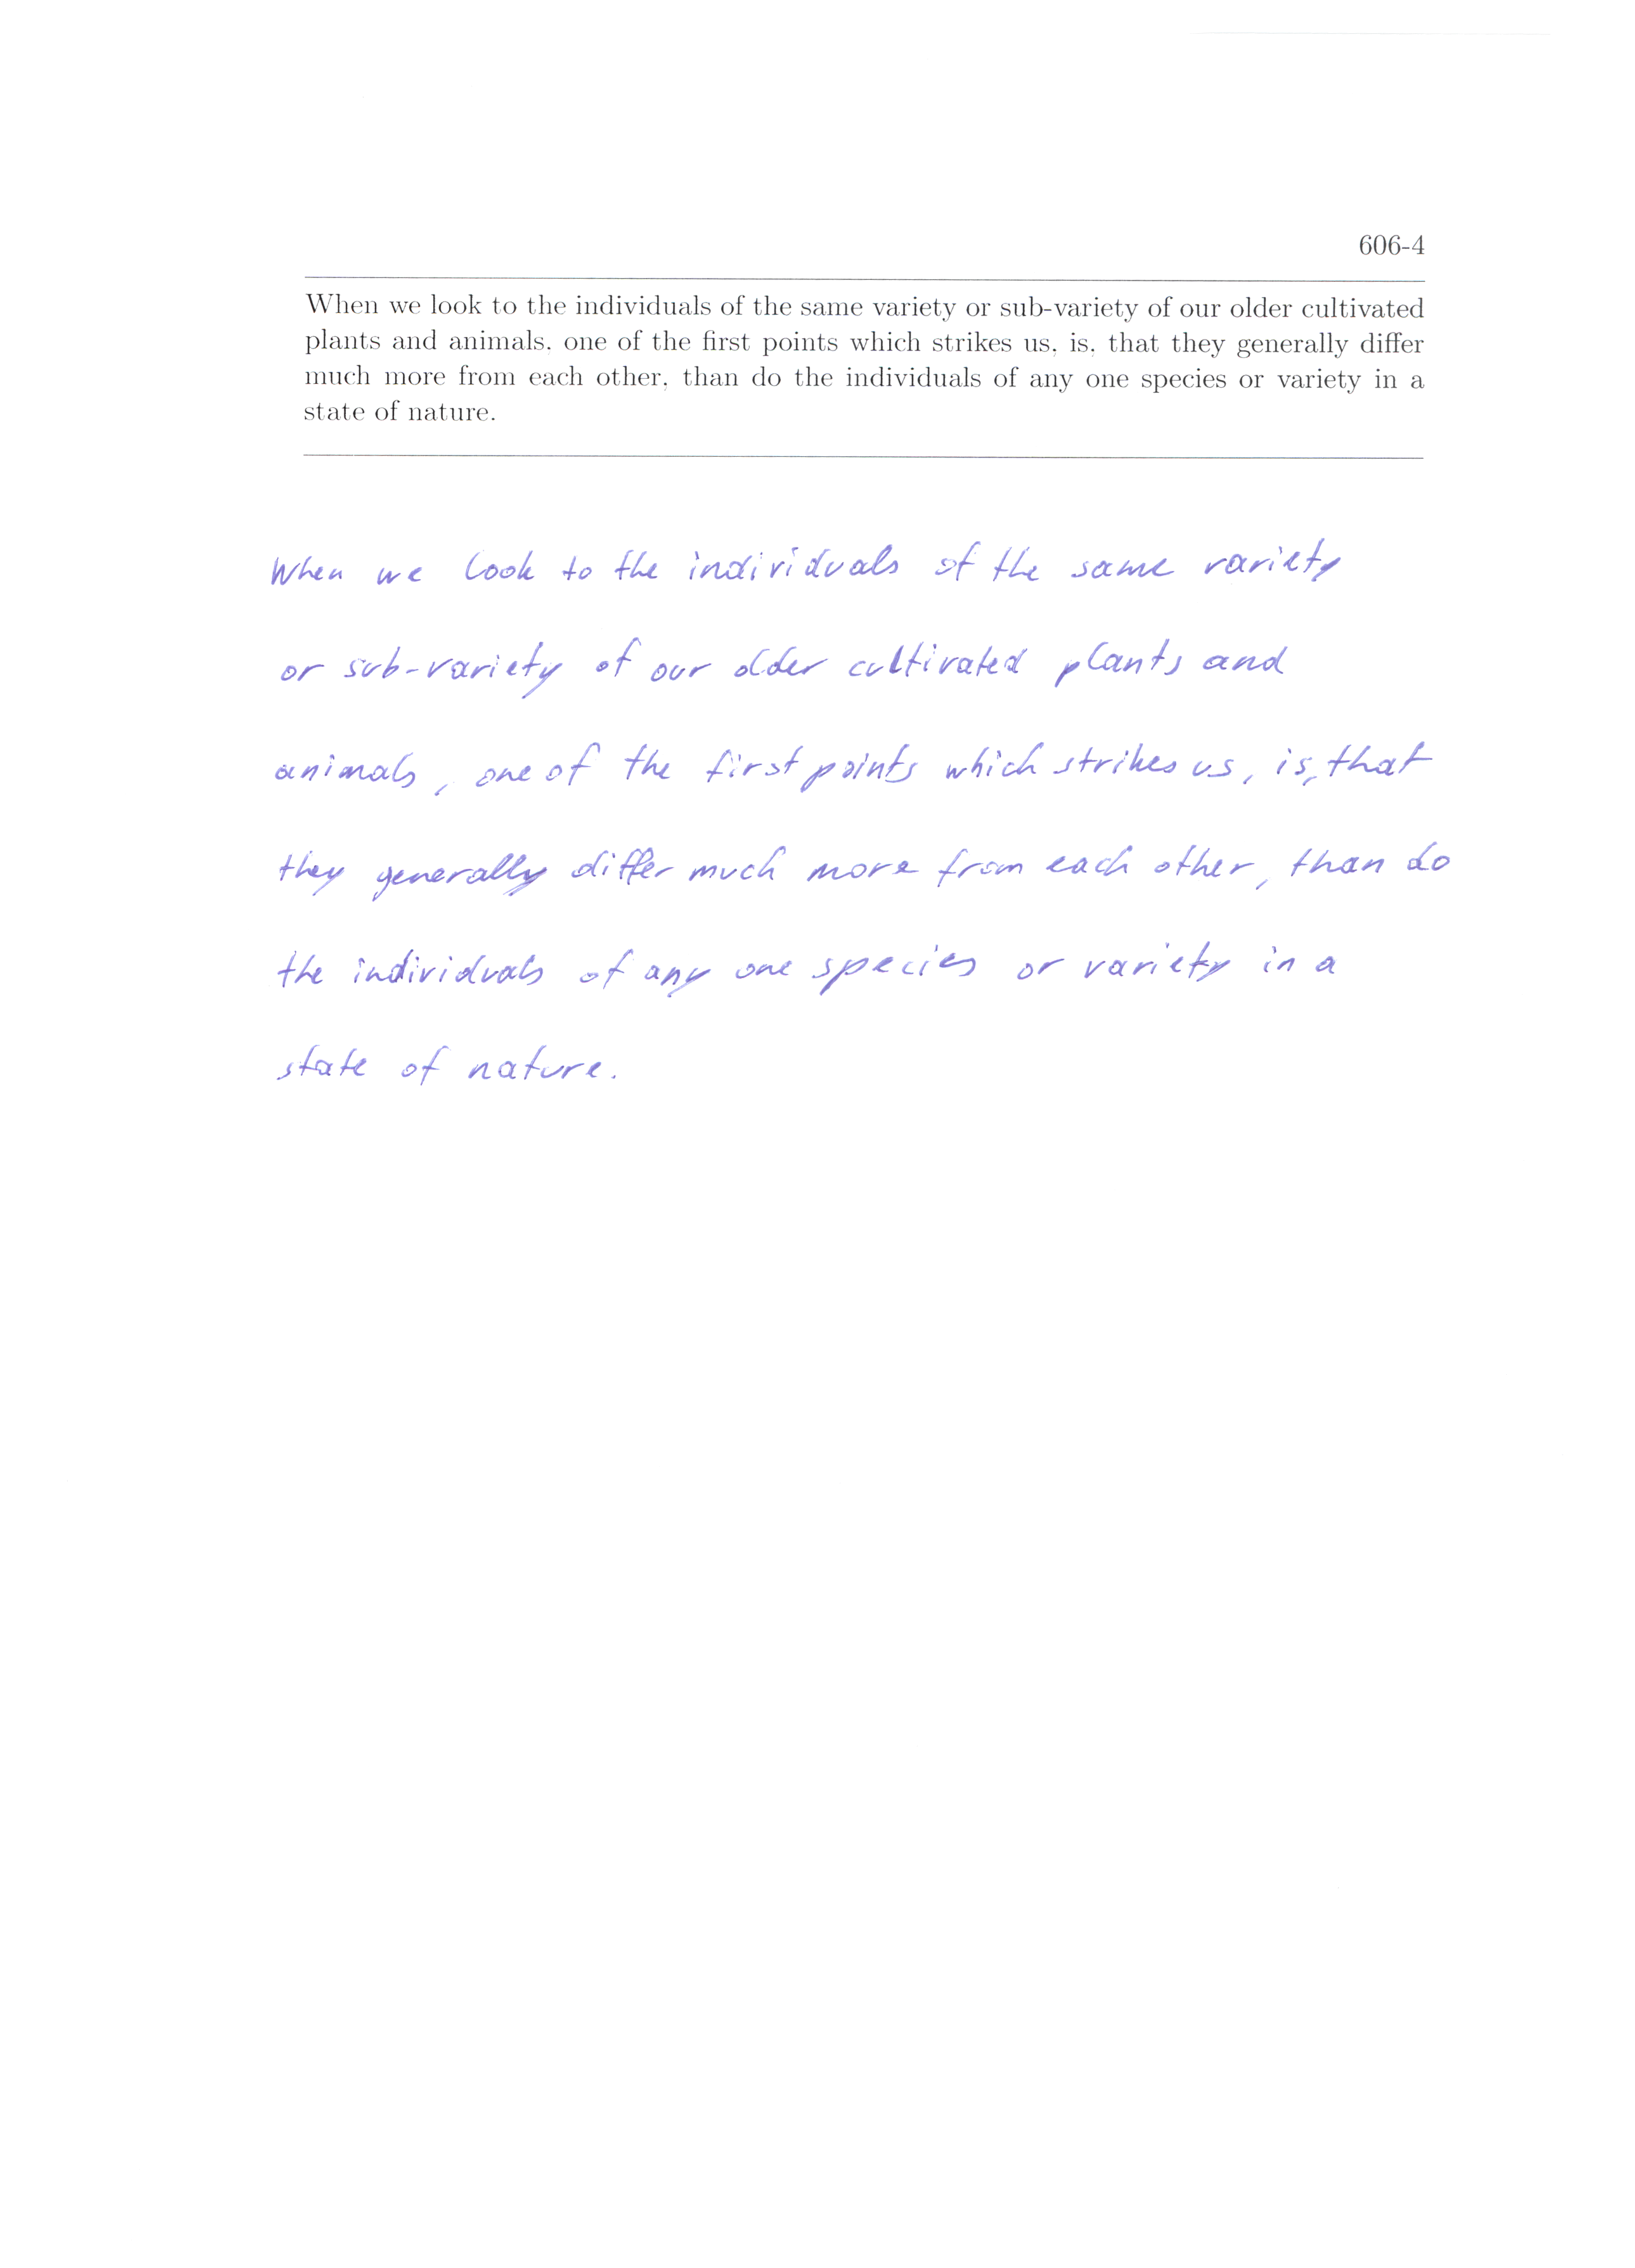 606-4
When we look to the individuals of the same variety or sub-variety of our older cultivated
plants and animals, one of the first points which strikes us, is, that they generally differ
much more from each other, than do the individuals of any one species or variety in a
state of nature.
When we look to the individuals of the same variety
or sub-variety of our older cultivated plants and
animals, one of the first points which strikes us, is, that
they generally differ much more from each other, than do
the individuals of any one species or variety in a
state of nature.